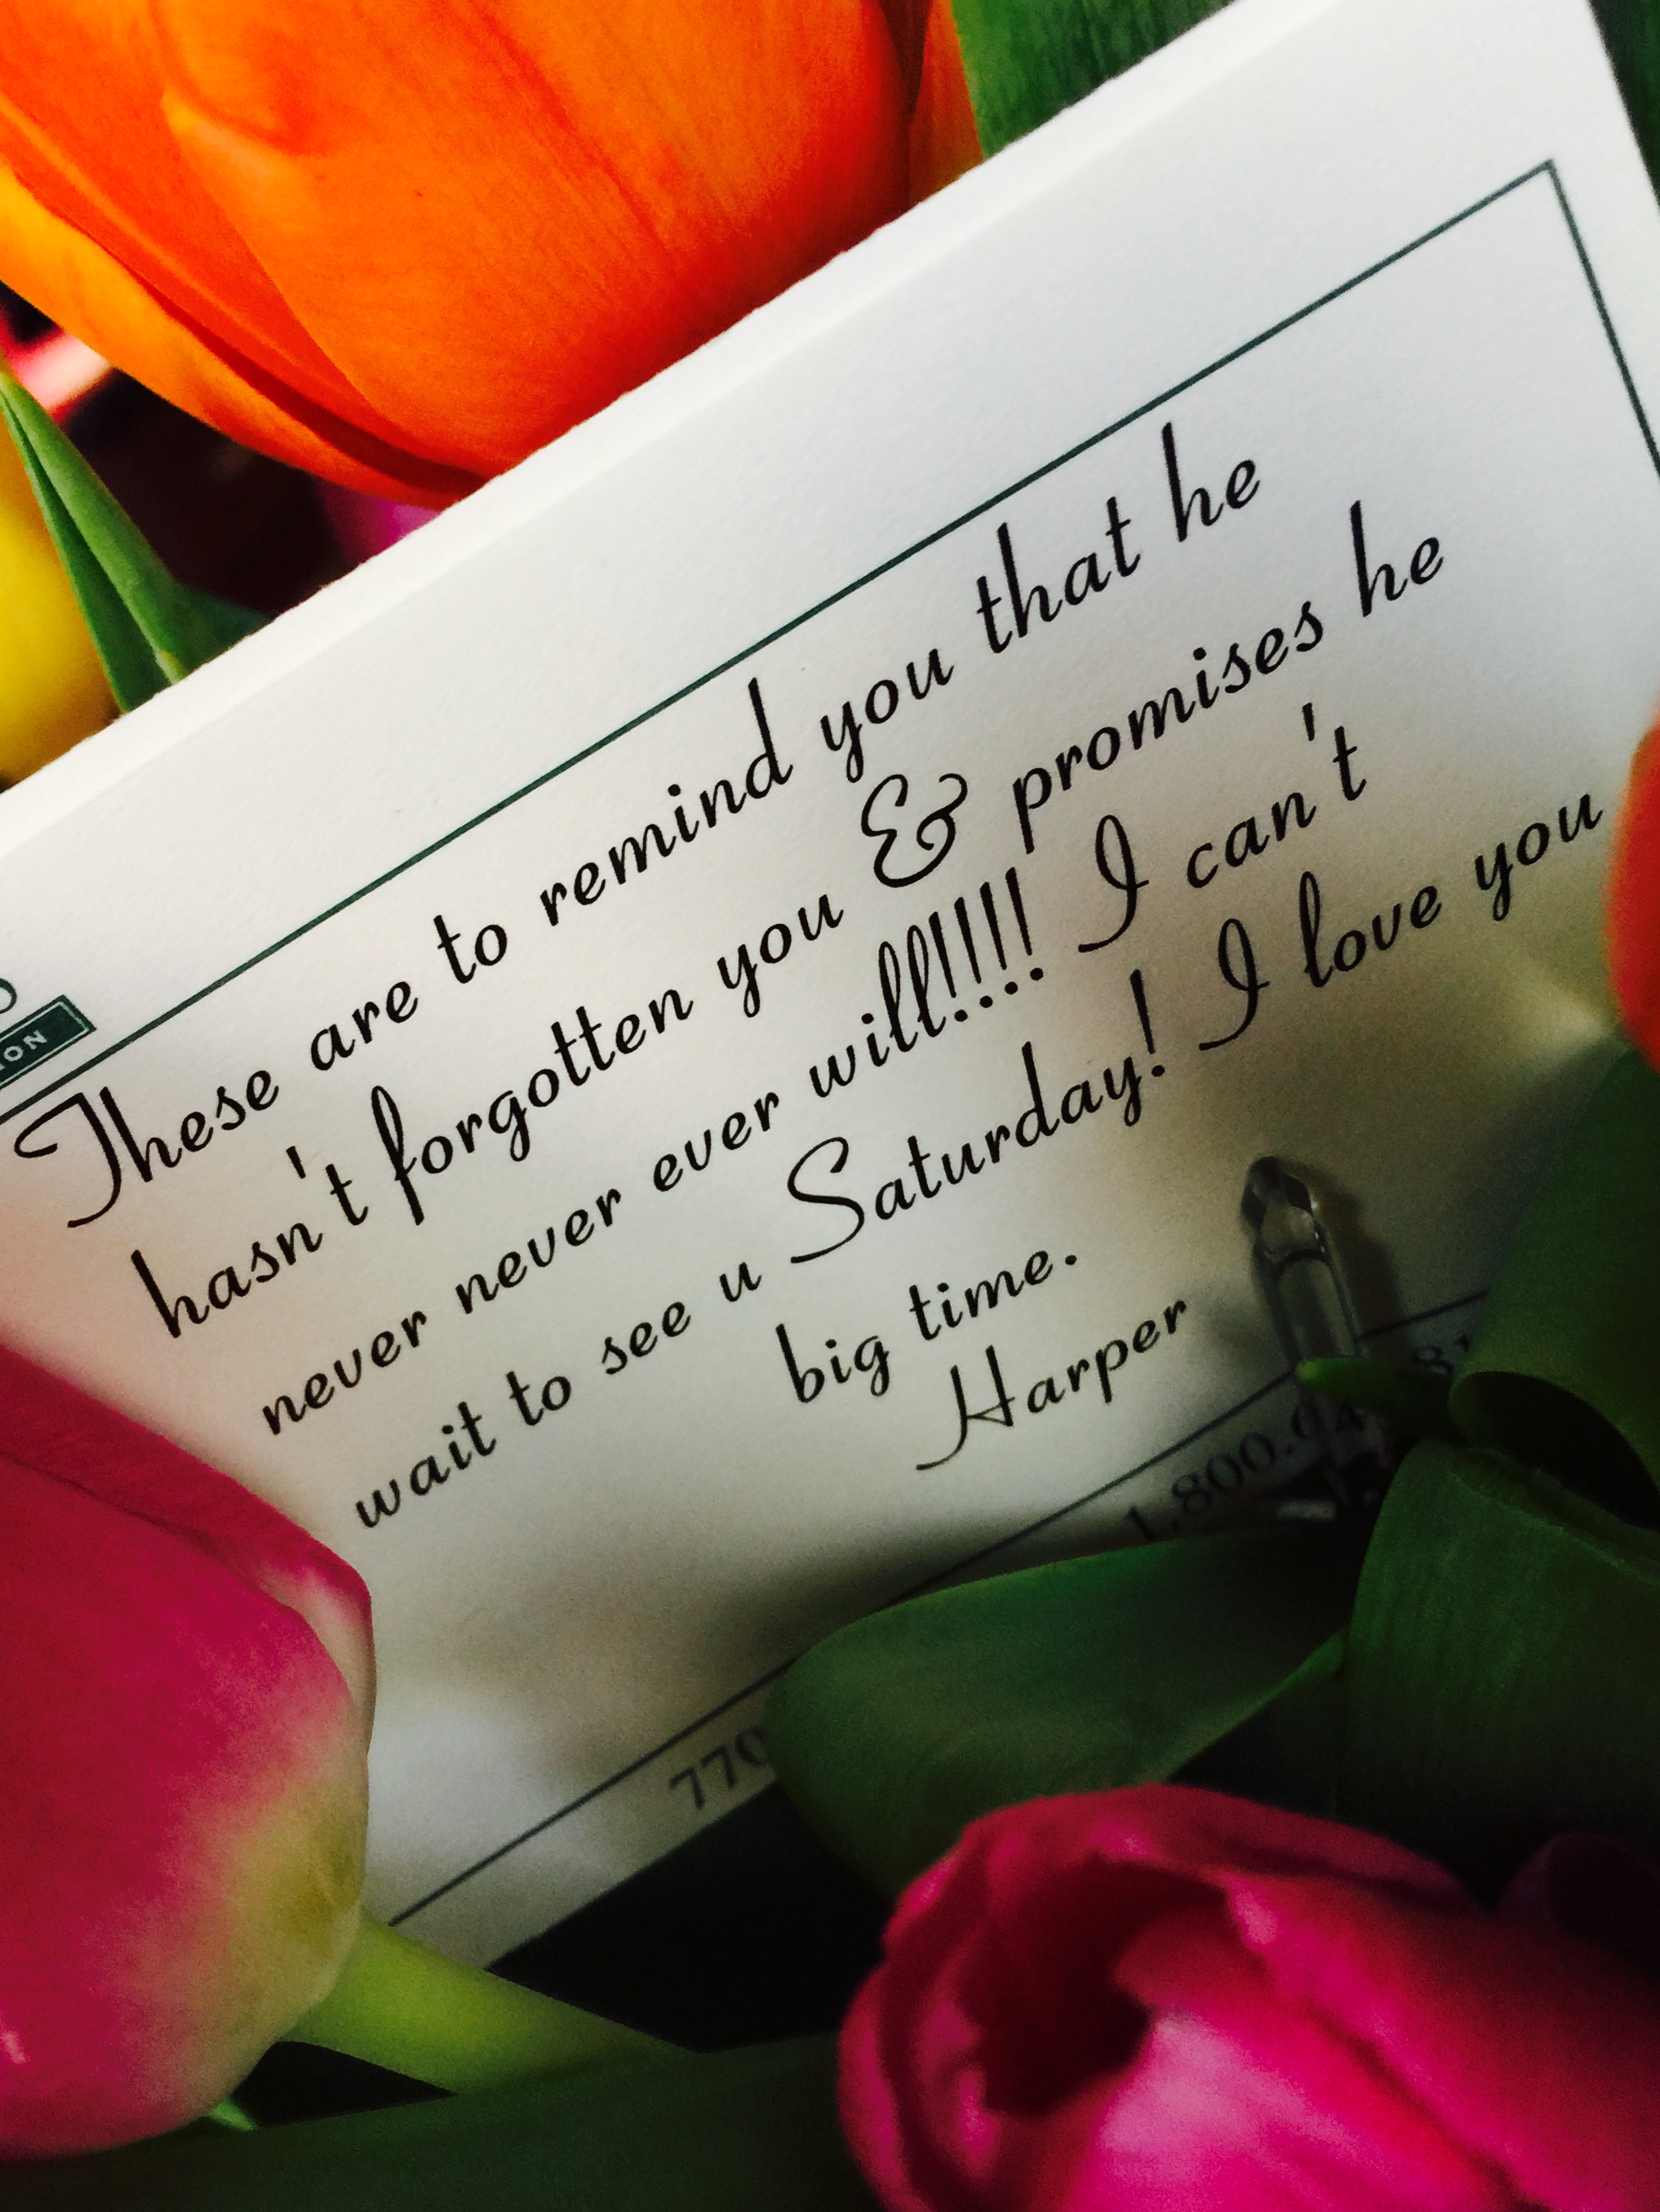 ION
These are to remind you that he
hasn't forgotten you & promises he
never never ever will!!!! I can't
wait to see u Saturday! I love you
big time.
Harper
770
1.800.